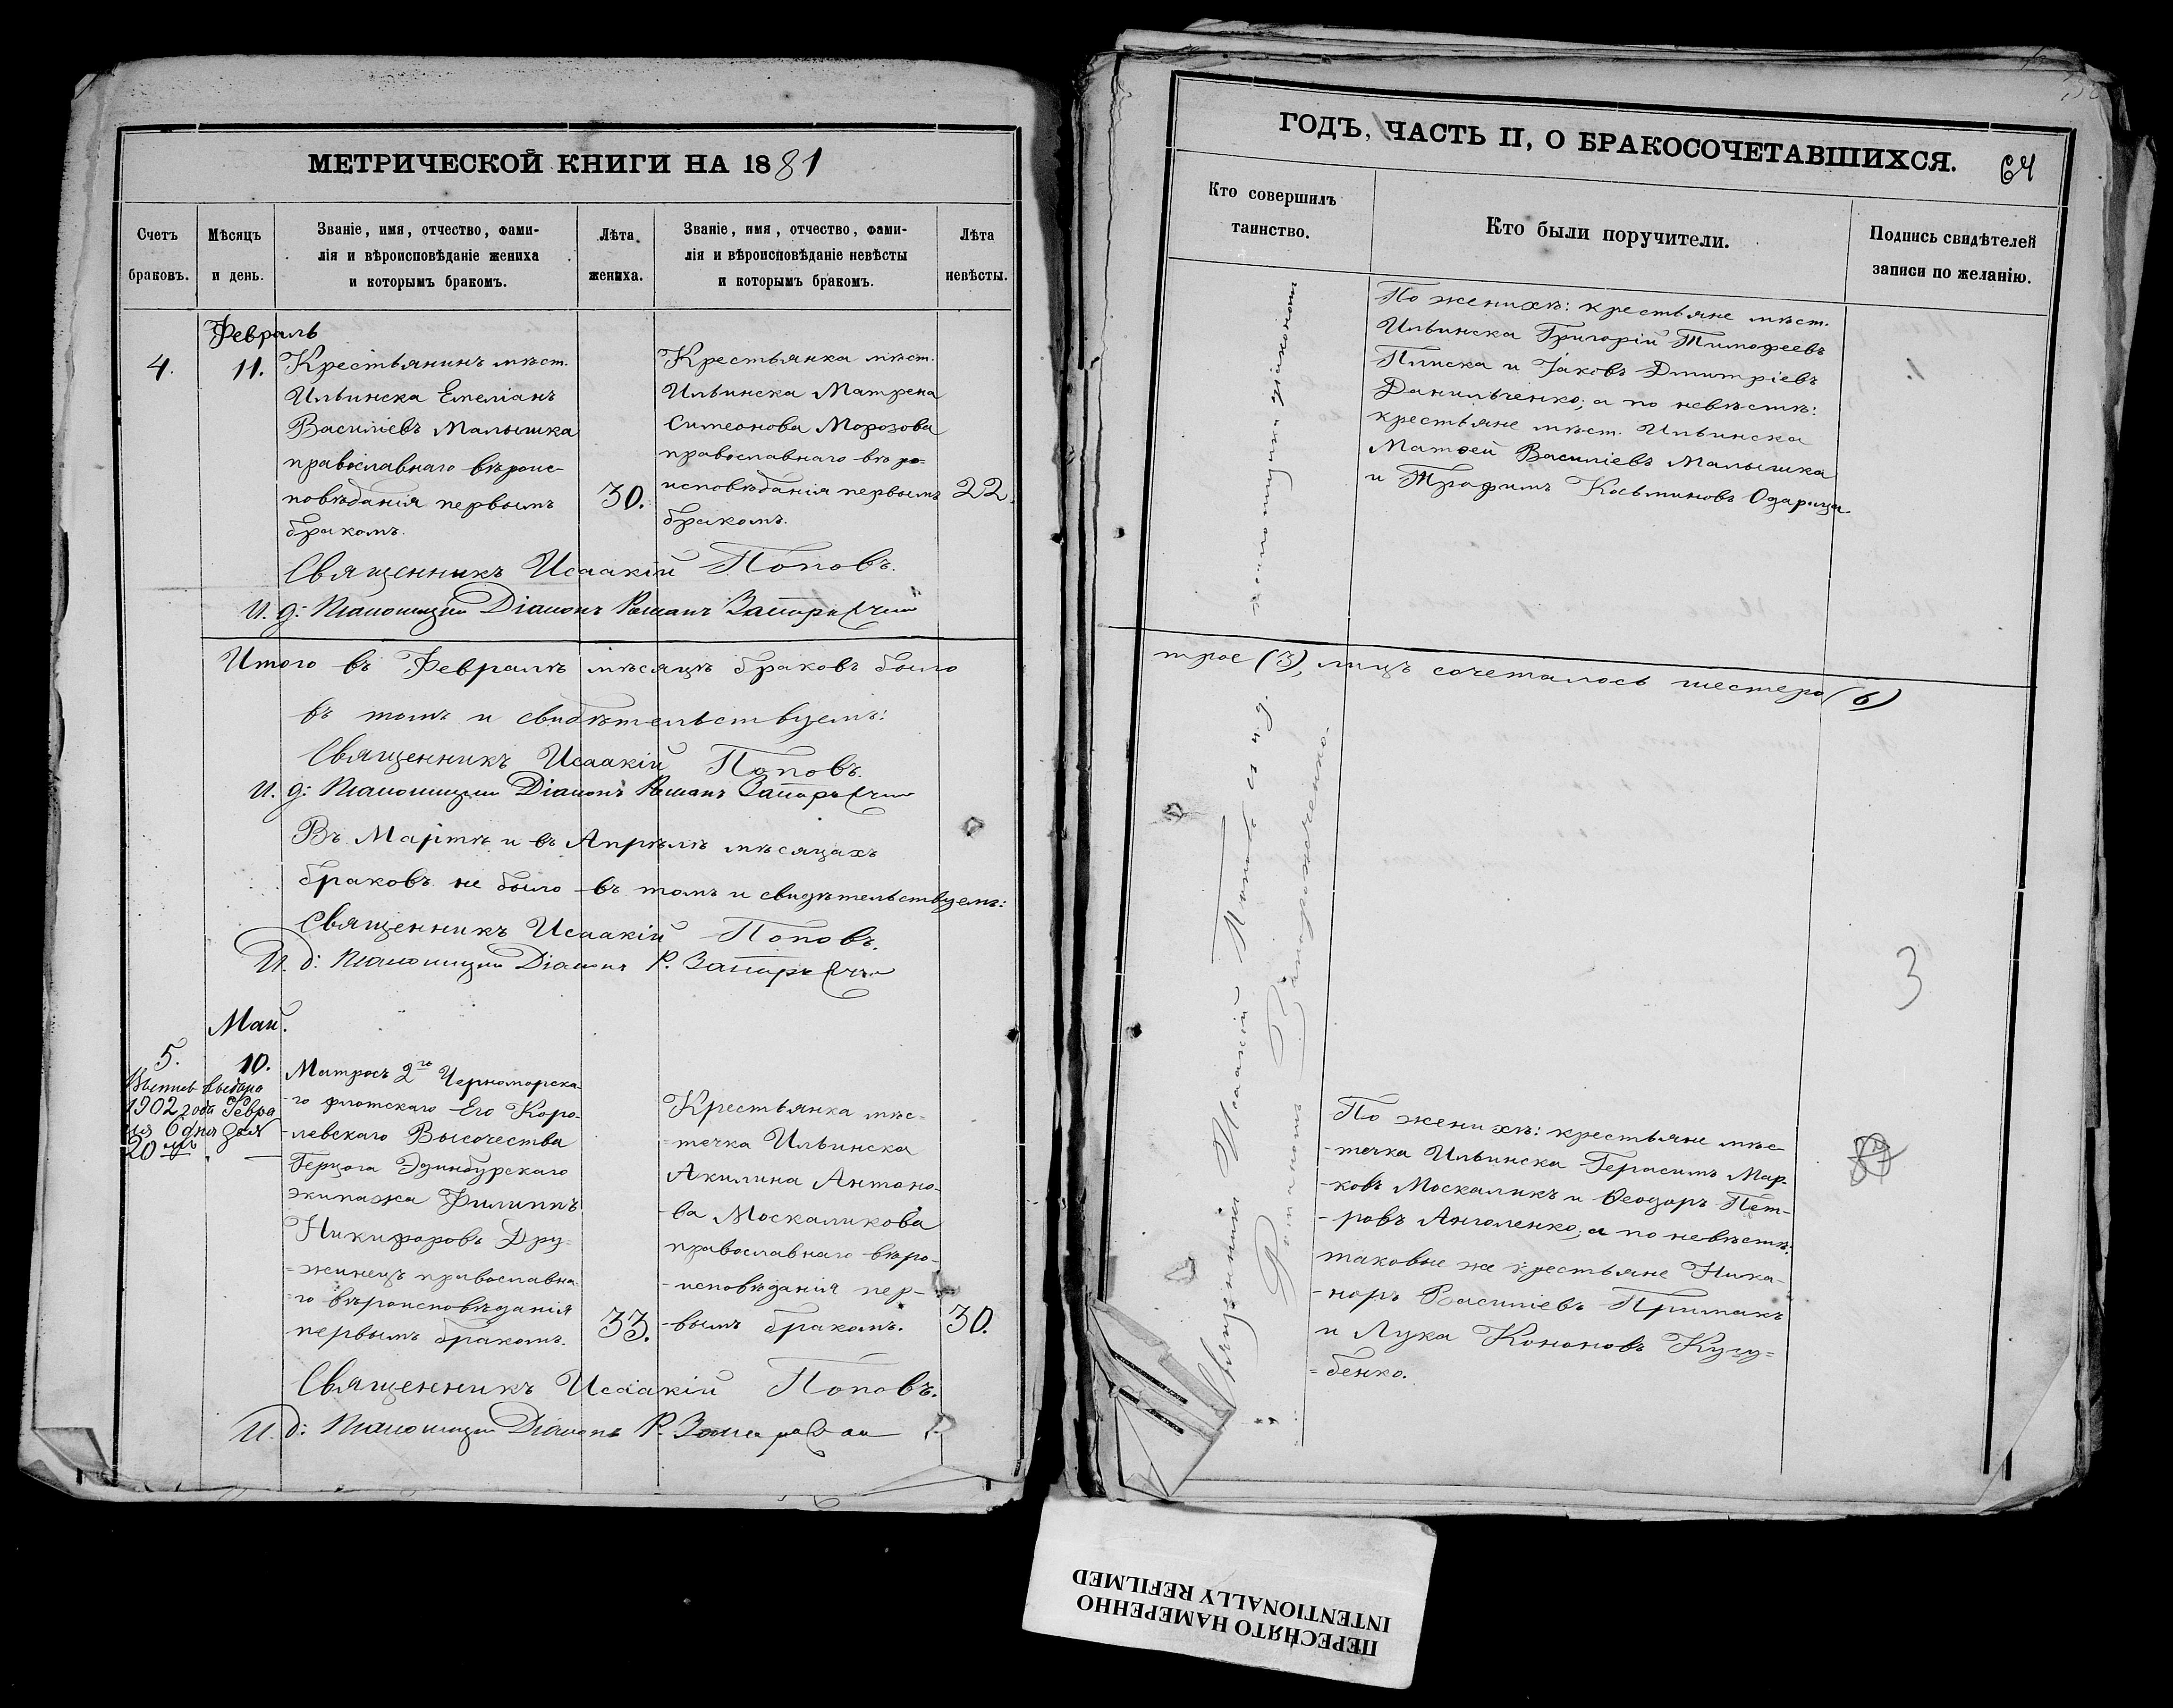 МЕТРИЧЕСКОЙ КНИГИ НА 1881
Счетъ
браковъ.
Мѣсяцъ
и день.
Званіе, имя, отчество, фами-
лія и вѣроисповѣданіе жениха
и которымъ бракомъ.
Лѣта
жениха.
Званіе, имя, отчество, фами-
лія и вѣроисповѣданіе невѣсты
и которымъ бракомъ.
Лѣта
невѣсты.
Февраль
4.
11.
Крестьянинъ мѣст.
Ильинска Емеліанъ
Василіевъ Малышка
православнаго вѣроис-
повѣданія первымъ
бракомъ.
30.
Крестьянка мѣст.
Ильинска Матрена
Симеонова Морозова
православнаго вѣро=
исповѣданія первымъ
бракомъ.
22.
Священникъ Исаакій Поповъ.
И. д: Псаломщика Діаконъ Романъ
Итого въ Февралѣ мѣсяцѣ браковъ было
въ томъ и свидѣтельствуемъ:
Священникъ Исаакій Поповъ.
И. д: Псаломщика Діаконъ Романъ
Въ Мартѣ и въ Апрѣлѣ мѣсяцахъ
браковъ не было въ томъ и свидѣтельствуемъ:
Священникъ Исаакій Поповъ.
И. д: Псаломщика Діаконъ Р.
Май.
5.
10.
1902 года Февра
ля 6 дня за №
20
Матросъ 2го Черноморска-
го флотскаго Его Коро-
-левскаго Высочества
Герцога Эдинбурскаго
экипажа Филиппъ
Никифоровъ Дру=
=жинецъ православна
=го вѣроисповѣданія
первымъ бракомъ.
33.
Крестьянка мѣс=
=течка Ильинска
Акилина Антоно-
-ва Москаликова
православнаго вѣро-
-исповѣданія пер-
-вымъ бракомъ.
30.
Священникъ Исаакій Поповъ.
И. д: Псаломщика Діаконъ Р.
ГОДЪ, ЧАСТЬ II, О БРАКОСОЧЕТАВШИХСЯ.
64
Кто совершилъ
таинство.
Кто были поручители.
Подпись свидѣтелей
записи по желанію.
По женихѣ: крестьяне мѣст.
Ильинска Григорій Тимофеевъ
Плиска и Іаковъ Дмитріевъ
Данильченко; а по невѣстѣ:
крестьяне мѣст. Ильинска
Матѳей Василіевъ Малышка
и Трофимъ Косьминовъ
трое (3), лицъ сочеталось шестеро (6)
Священникъ Исаакій Поповъ съ и. д.
псаломщика Діакономъ
Романомъ Запорожченко.
3
По женихѣ: крестьяне мѣс
-течка Ильинска Герасимъ Мар-
-ковъ Москаликъ и Ѳеодоръ Пет-
-ровъ а по невѣстѣ:
таковые же крестьяне Ника-
-норъ Василіевъ Примакъ
и Лука Кононовъ
=бенко.
ПЕРЕСНЯТО НАМЕРЕННО
INTENTIONALLY REFILMED